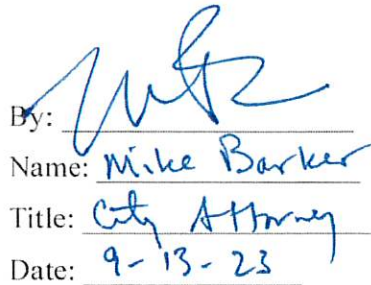 By:
Name: Mike Barker
Title: City Attorney
Date: 9-13-23